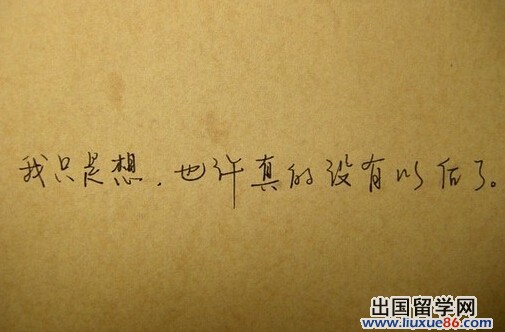 我只是想，也许真的没有以后了。
出国留学网
www.liuxue86.com